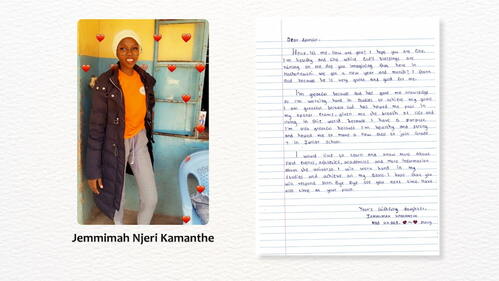 Jemmimah Njeri Kamanthe
Dear Sponsor,
How are you? I hope you are fine.
I'm healthy and fine while God's blessings are
raining on me. Are you imagining that here in
we got a new year and month? I thank
God because he is very good and good for me.
I'm grateful because God has gave me knowledge
so I'm working hard in studies to achieve my goals.
I am grateful because God has helped me pass in
my Exams, given me the breath of life and
living in this world because I have a purpose.
I'm also grateful because I'm healthy and strong
and helped me to move a new step to join Grade
7 in Junior School.
I would like to learn and know more about
academics and more information
about the universe. I will work hard in my
studies and achieve all my goals. I hope that you
will respond soon. Bye Bye see you next time. Have
nice time at your place.
Your's faithfully daughter,
JEMMIMAH KAMANTHE